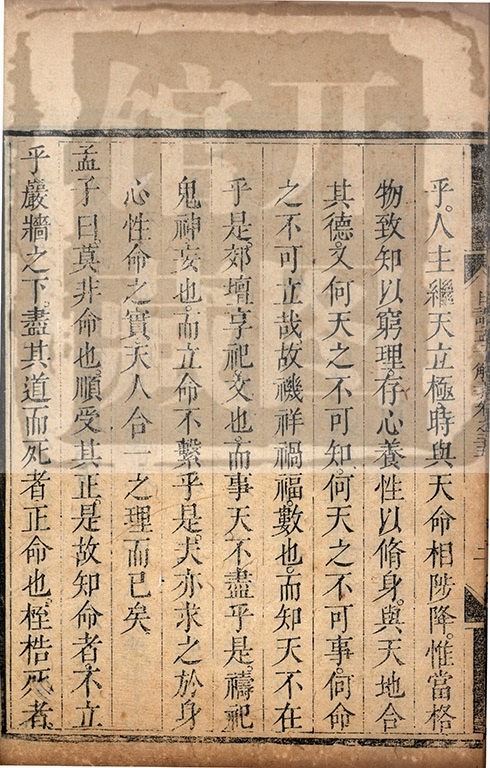 乎。人主繼天立極。時與天命相陟降。惟當格
物致知以窮理。存心養性以脩身。與天地合
其德。又何天之不可知。何天之不可事。何命
之不可立哉。故禨祥禍福。數也。而知天不在
乎是。郊壇享祀。文也。而事天不盡乎是。禱祀
鬼神。妄也。而立命不繫乎是。夫亦求之於身
心性命之實。天人合一之理而已矣
孟子曰。莫非命也。順受其正。是故知命者。不立
乎巖牆之下。盡其道而死者。正命也。桎梏死者